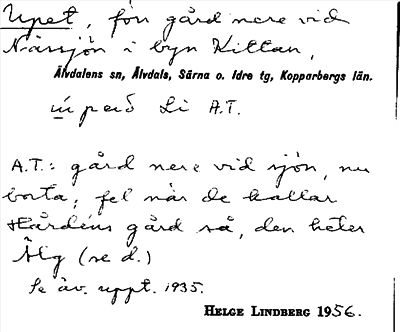 Upet, förr gård nere vid
Nässjön i byn Kittan,
Älvdalens sn, Älvdals, Särna o. Idre tg, Kopparbergs län.
Li A.T.
A.T.: gård nere vid sjön, nu
borta; fel när de kallar
Hårdéns gård så, den heter
(se d.)
Se äv. uppt. 1935.
HELGE LINDBERG 1956.